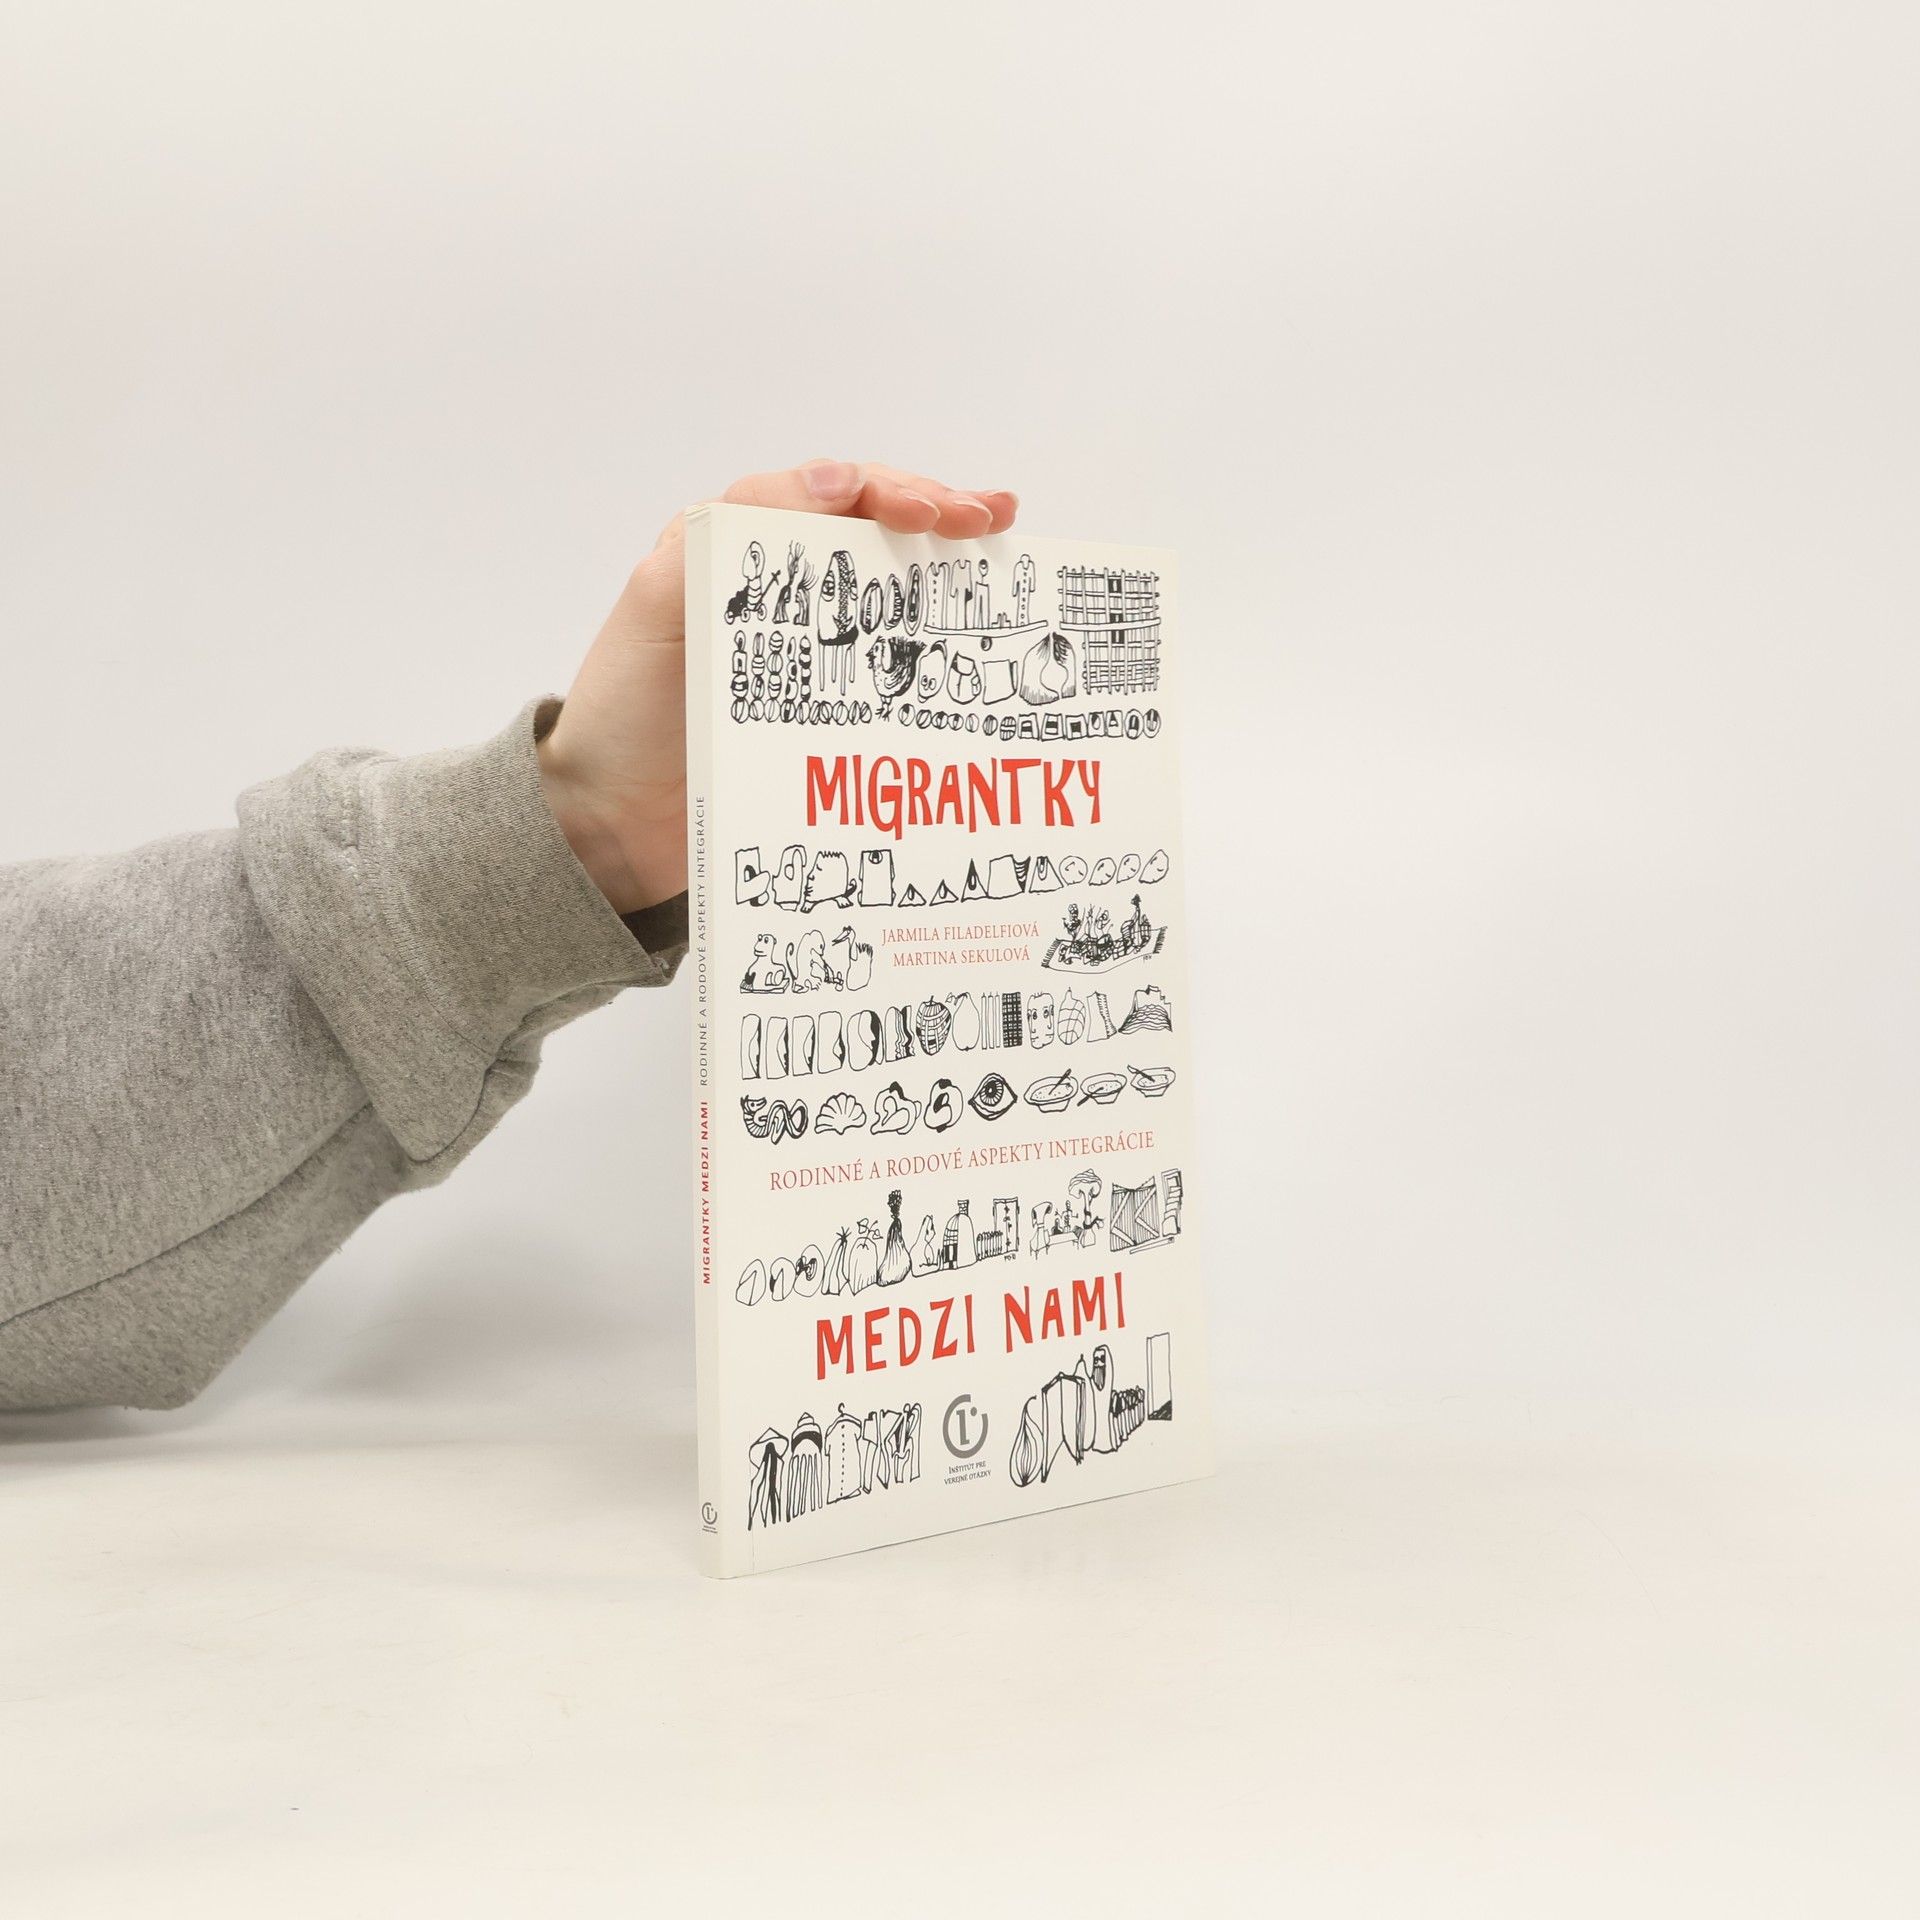 MIGRANTKY
JARMILA FILADELFIOVÁ
MARTINA SEKULOVÁ
RODINNÉ A RODOVÉ ASPEKTY INTEGRÁCIE
MEDZI NAMI
INŠTITÚT PRE
VEREJNÉ OTÁZKY
MIGRANTKY MEDZI NAMI RODINNÉ A RODOVÉ ASPEKTY INTEGRÁCIE